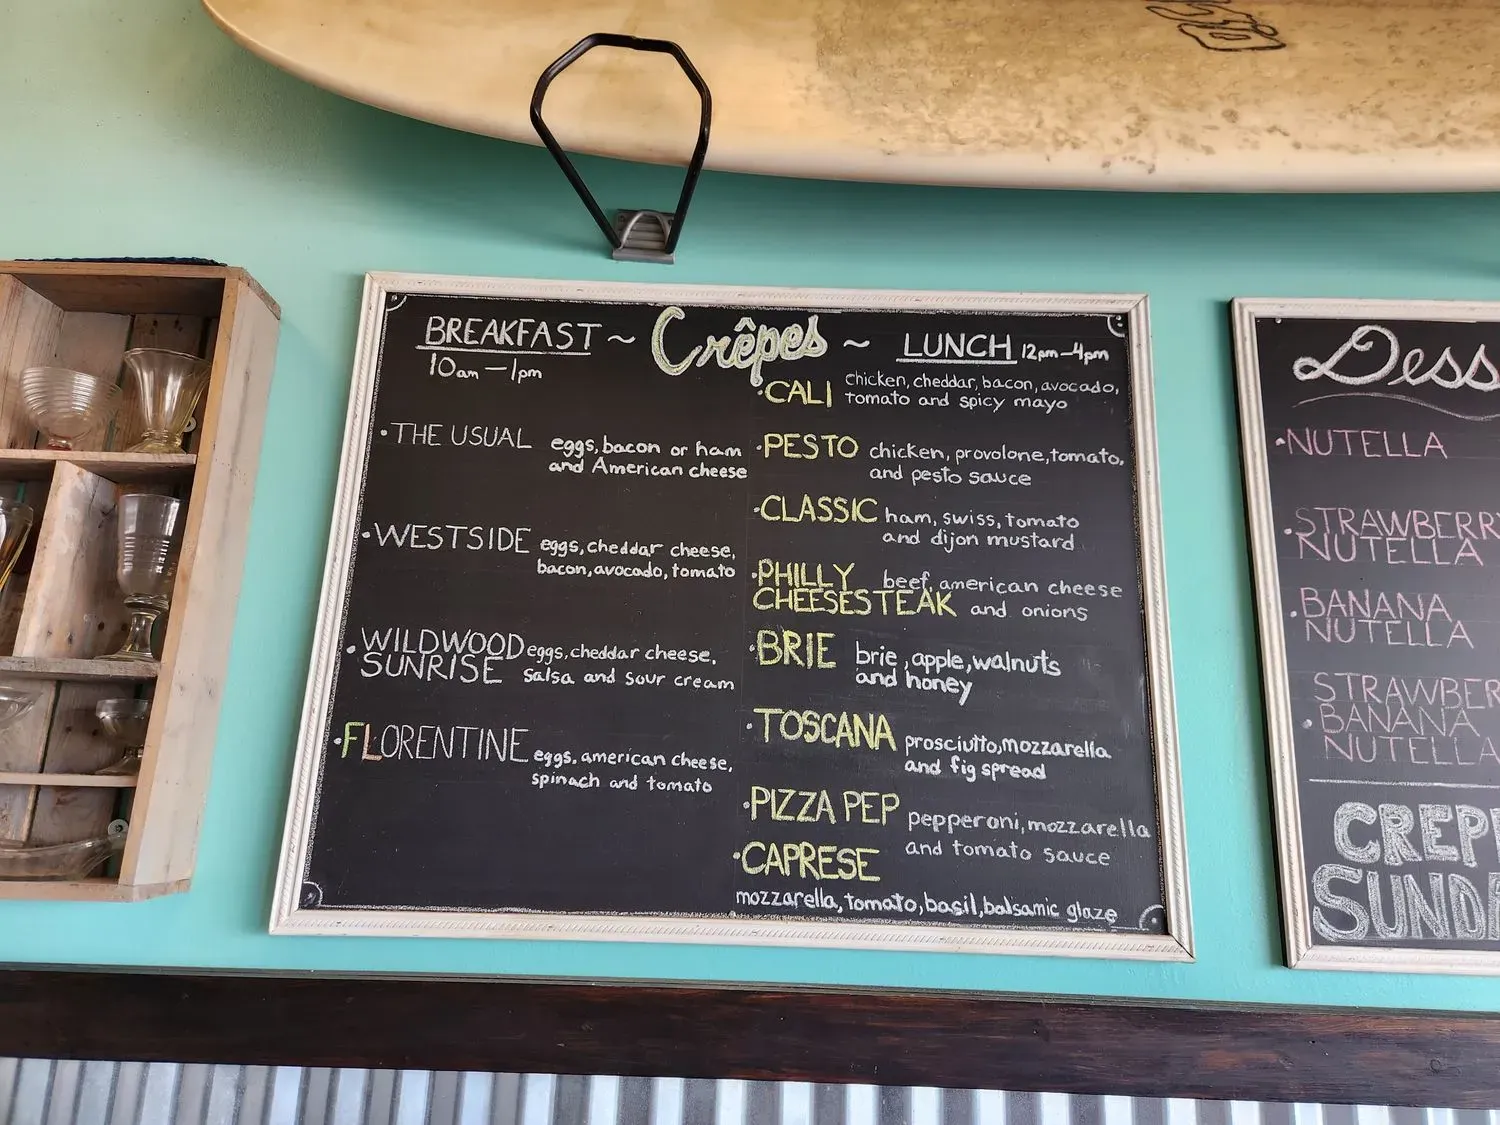 BREAKFAST ~ Crêpes ~ LUNCH 12pm-4pm
10am - 1pm
· THE USUAL eggs, bacon or ham
and American cheese
· WESTSIDE eggs, cheddar cheese,
bacon, avocado, tomato
· WILDWOOD eggs, cheddar cheese,
SUNRISE salsa and sour cream
· FLORENTINE eggs, american cheese,
spinach and tomato
· CALI chicken, cheddar, bacon, avocado,
tomato and spicy mayo
· PESTO chicken, provolone, tomato,
and pesto sauce
· CLASSIC ham, swiss, tomato
and dijon mustard
· PHILLY beef, american cheese
CHEESESTEAK and onions
· BRIE brie, apple, walnuts
and honey
· TOSCANA prosciutto, mozzarella
and fig spread
· PIZZA PEP pepperoni, mozzarella
and tomato sauce
· CAPRESE
mozzarella, tomato, basil, balsamic glaze
Dess
· NUTELLA
· STRAWBERRY
NUTELLA
· BANANA
NUTELLA
· STRAWBER
BANANA
NUTELLA
CREP
SUND